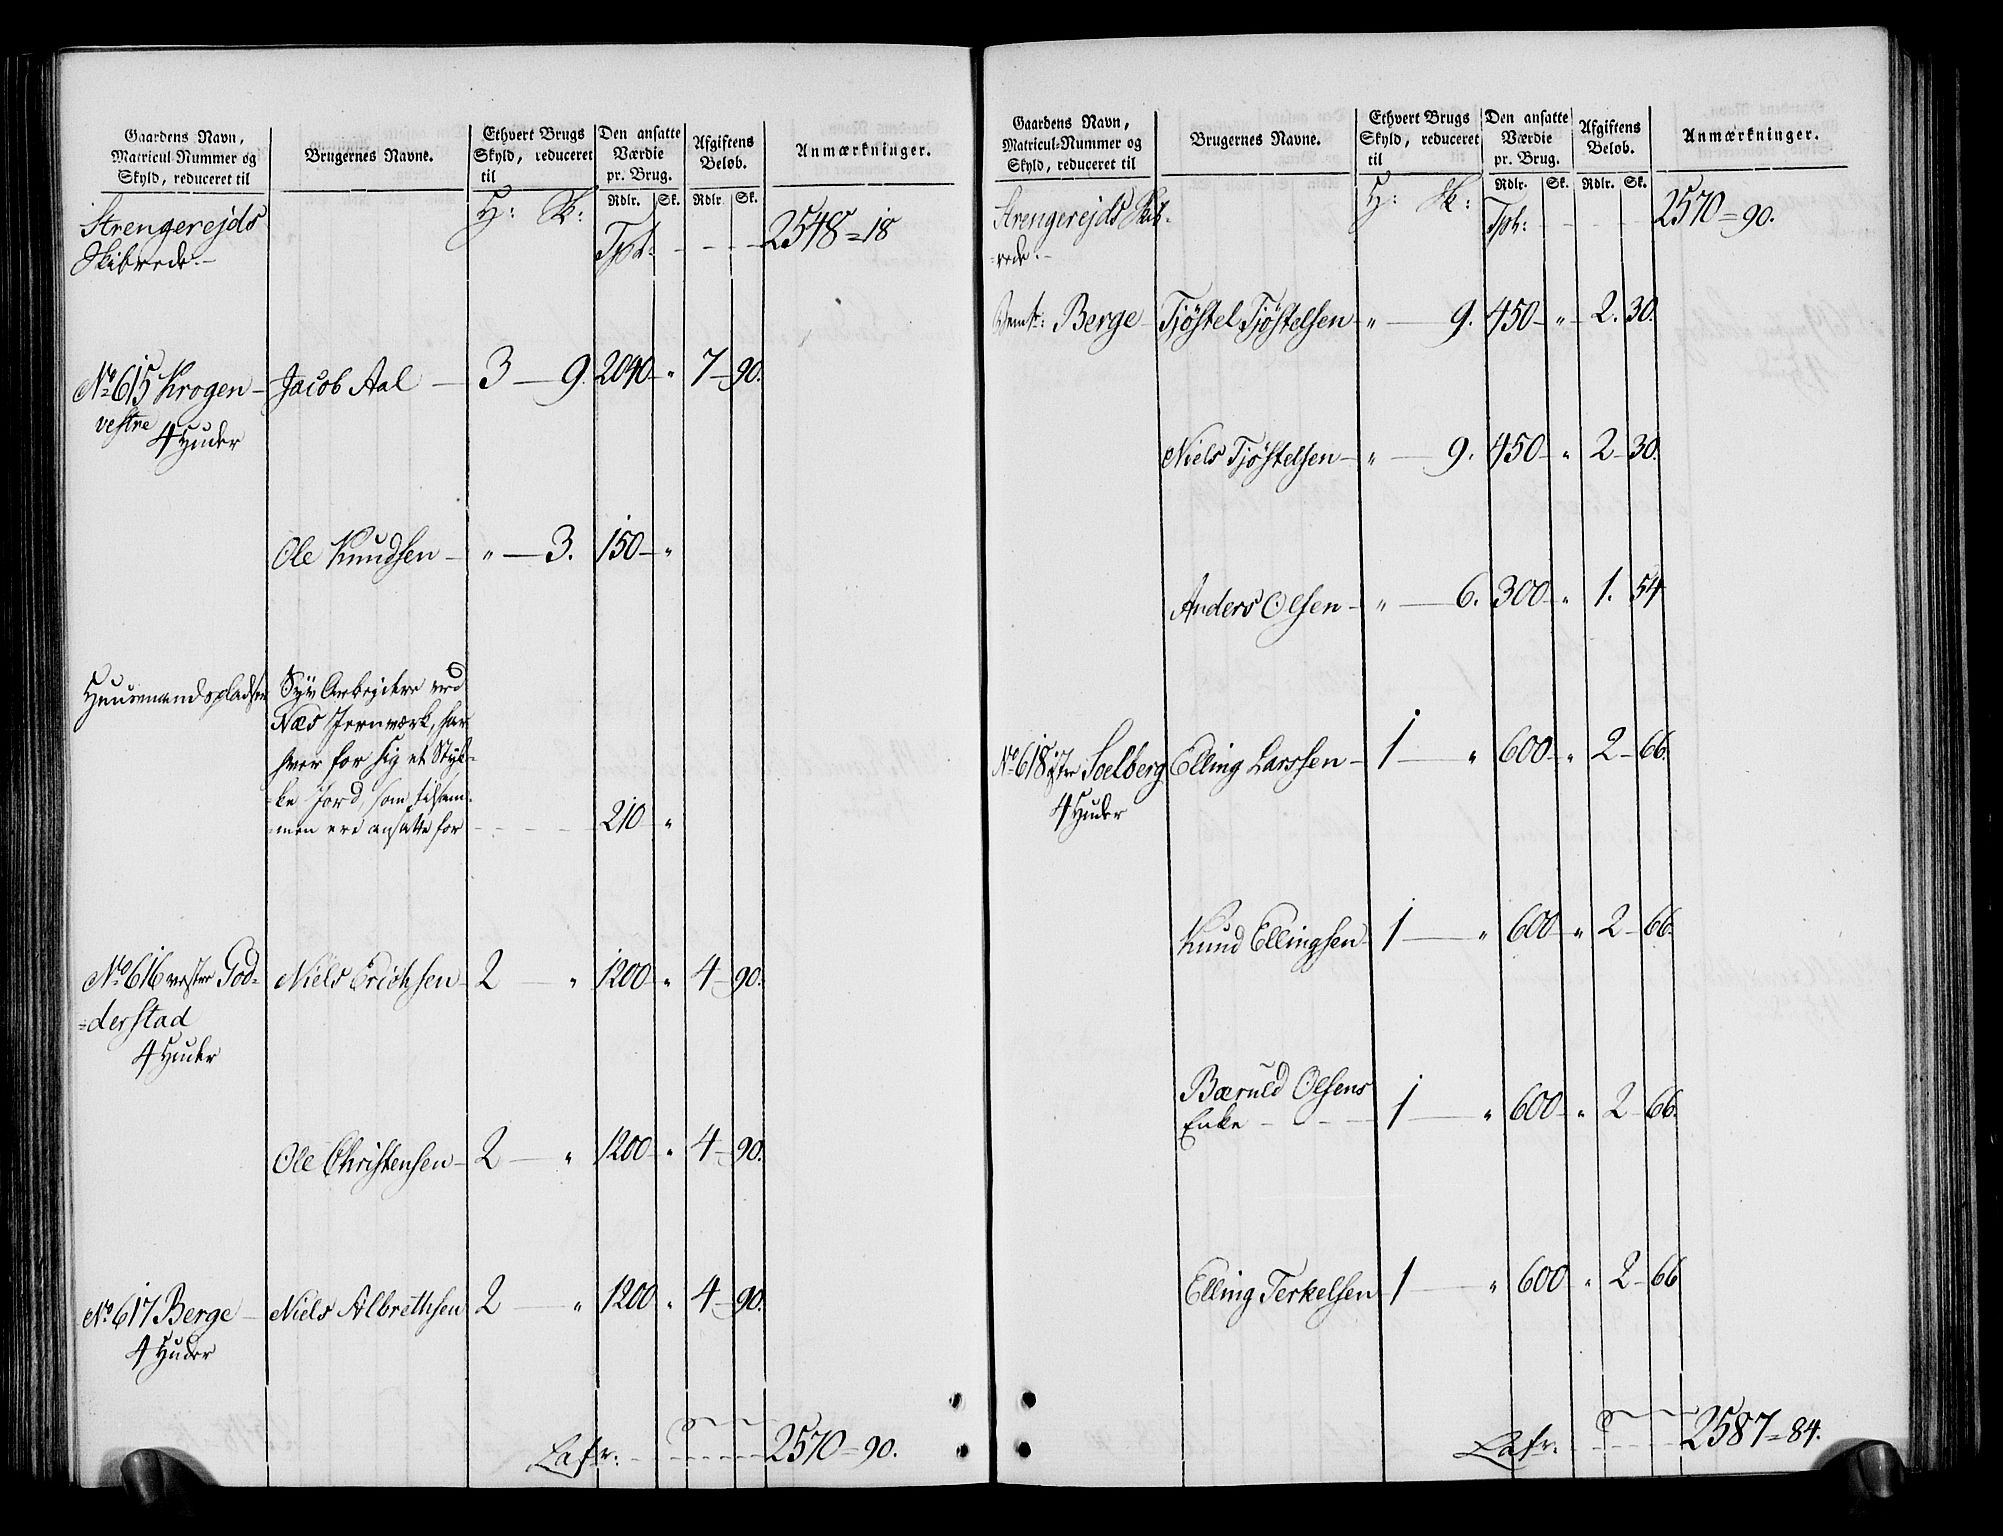 Gaardens Navn,
Matricul-Nummer og
Skyld, reduceret til
Brugernes Navne.
Ethvert Brugs
Skyld, reduceret
til
Den ansatte
Værdie
pr. Brug.
Afgiftens
Beløb.
Anmærkninger.
Rdlr. Sk. Rdlr. Sk.
Strengerejds H: Sk:
Skibrede.- Tpt: - - - - 2548=18
No 615 Krogen - Jacob Aal - 3 - 9. 2040 - " 7 - 90.
vestre
4 Huder
Ole Knudsen - " - 3. 150 - "
Huusmandspladser Syv Arbejdere ved
Næs Jernværk, har
hver for sig et Styk-
-ke Jord, som tilsam-
-men ere ansatte for - - - - 210 "
No 616 vestre God- Niels Erichsen - 2 - " 1200 - " 4 - 90.
-derstad
4 Huder
Ole Christensen - 2 - " 1200 - " 4 - 90.
No 617 Berge - Niels Albrethsen 2 - " 1200 - " 4 - 90.
4 Huder
Lafr: - - - - - 2570=90.
Gaardens Navn,
Matricul-Nummer og
Skyld, reduceret til
Brugernes Navne.
Ethvert Brugs
Skyld, reduceret
til
Den ansatte
Værdie
pr. Brug.
Afgiftens
Beløb.
Anmærkninger.
Rdlr. Sk. Rdlr. Sk.
Strengerejds Skib- H: Sk:
-rede.- Tpt: - - - - 2570=90.
Berge - Tjøstel Tjøstelsen - " - 9. 450 - " - 2. 30.
Niels Tjøstelsen - " - 9. 450 - " 2 - 30.
Anders Olsen - " - 6. 300 - " 1. 54
No 618 østre Soelberg Elling Larssen - 1 - " 600 - " 2 - 66.
4 Huder
Knud Ellingsen - 1 - " 600 - " 2 - 66.
Bæruld Olsens
Enke - - - 1 - " 600 - " 2 - 66.
Elling Terkelsen - 1 - " 600 " 2 - 66
Lafr: - - - - - 2587=84.